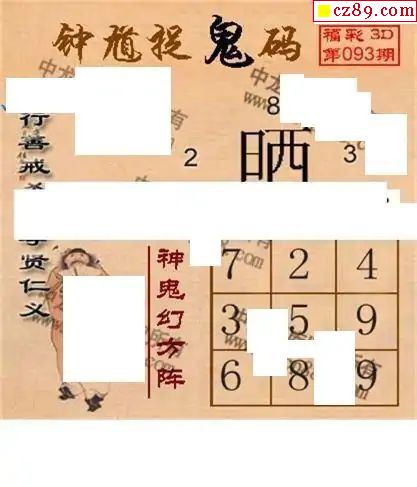 cz89.com
钟馗捉鬼码
福彩 3D
第093期
8
晒
2
3
行善戒
贤仁义
神鬼幻方阵
7 2 4
3 5 9
6 8 9